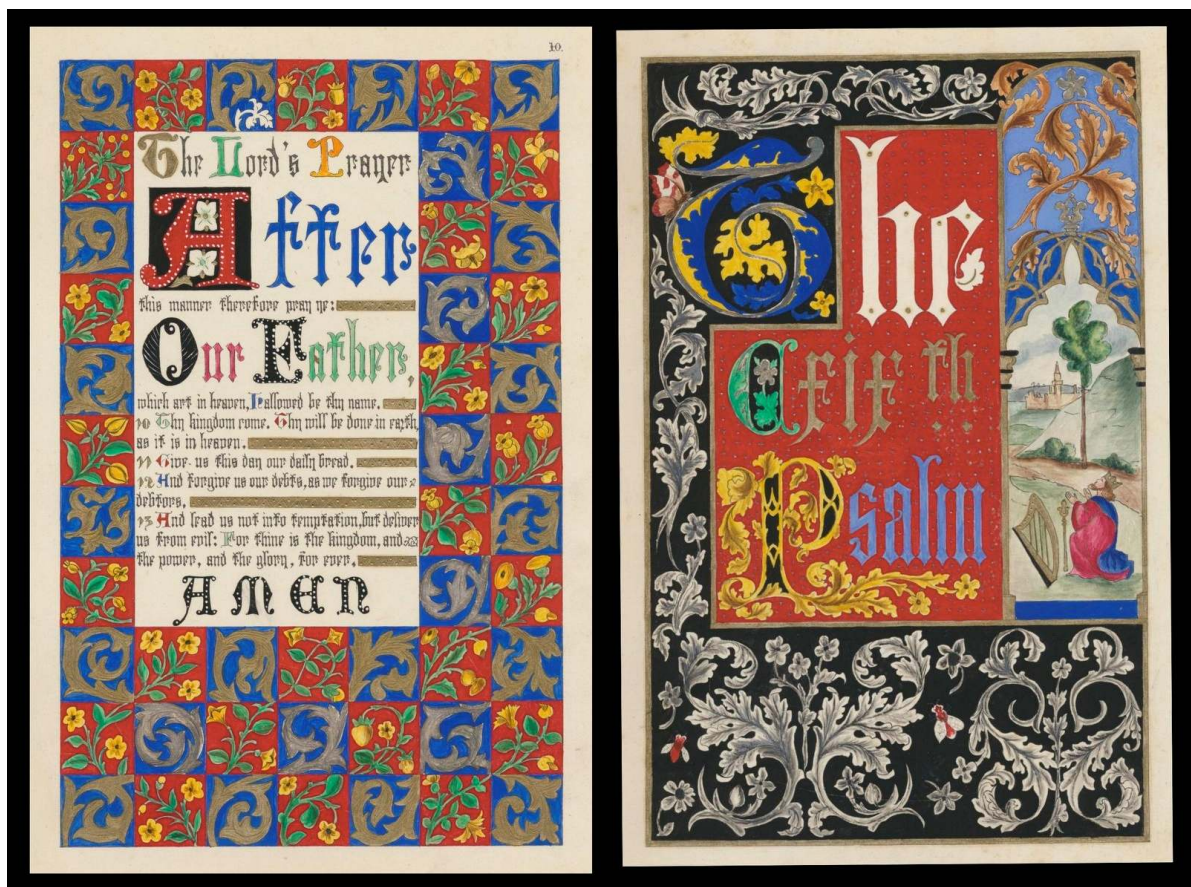 10.
The Lord's Prayer
After
this manner therefore pray ye:
Our Father,
which art in heaven, Hallowed be thy name.
10 Thy kingdom come. Thy will be done in earth,
as it is in heaven.
11 Give us this day our daily bread.
12 And forgive us our debts, as we forgive our
debtors.
13 And lead us not into temptation, but deliver
us from evil: For thine is the kingdom, and
the power, and the glory, for ever.
AMEN
The
Cxix th
Psalm